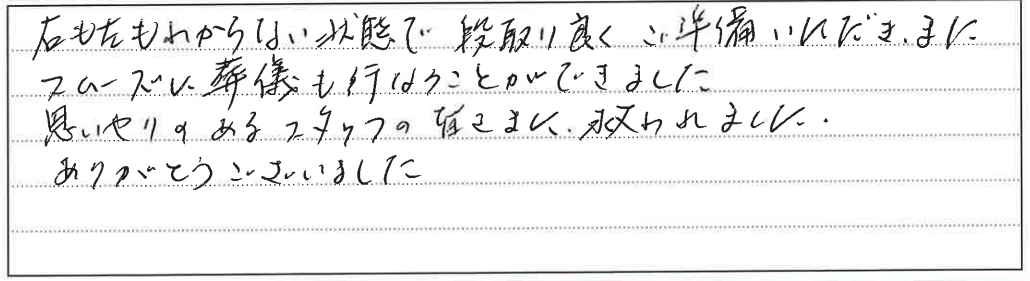 右も左もわからない状態で 段取り良く ご準備いただき、また
スムーズに葬儀も行なうことができました
思いやりのあるスタッフの皆さまに、救われました.
ありがとうございました